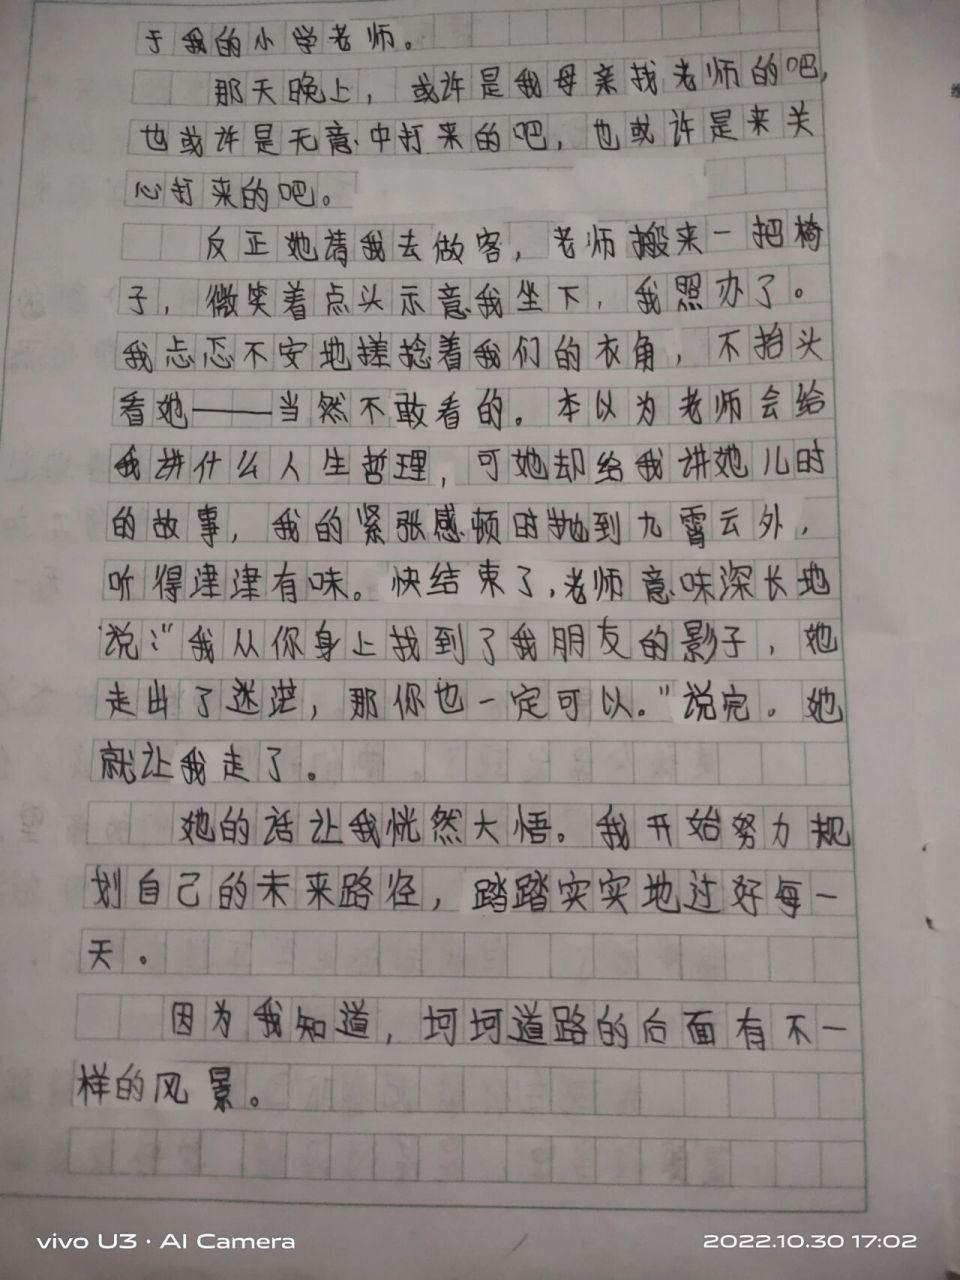 于我的小学老师。
那天晚上，或许是我母亲找老师的吧，
也或许是无意中打来的吧，也或许是来关
心打来的吧。
反正她请我去做客，老师搬来一把椅
子，微笑着点头示意我坐下，我照办了。
我忐忑不安地搓捻着我们的衣角，不抬头
看她——当然不敢看的。本以为老师会给
我讲什么人生哲理，可她却给我讲她儿时
的故事，我的紧张感顿时抛到九霄云外，
听得津津有味。快结束了，老师意味深长地
说：“我从你身上找到了我朋友的影子，她
走出了迷茫，那你也一定可以。”说完。她
就让我走了。
她的话让我恍然大悟。我开始努力规
划自己的未来路径，踏踏实实地过好每一
天。
因为我知道，坷坷道路的后面有不一
样的风景。
vivo U3 · AI Camera
2022.10.30 17:02